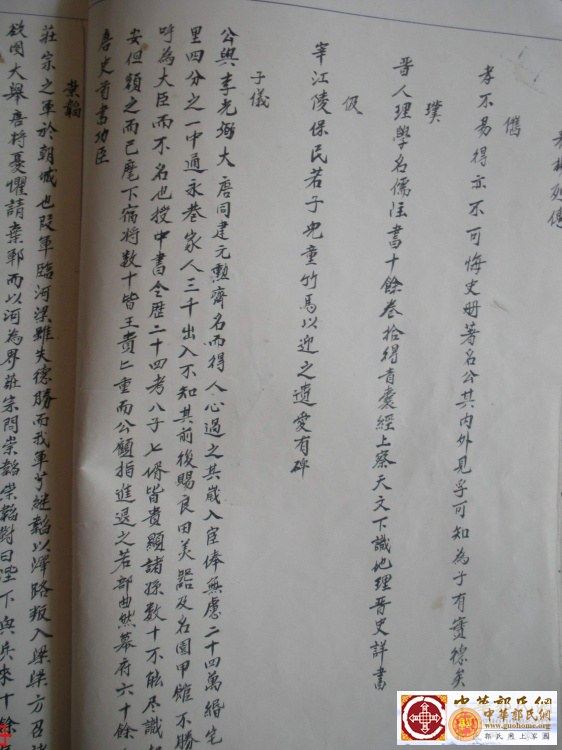 儁
孝不易得亦不可悔史冊著名公其內外見孚可知為子有實德矣
璞
晉人理學名儒注書十餘卷拾得青囊經上察天文下識地理晉史詳書
伋
宰江陵保民若子兒童竹馬以迎之遺愛有碑
子儀
公與李光弼大唐同建元勲齊名而得人心過之其歲入官俸無慮二十四萬緡宅
里四分之一中通永巷家人三千出入不知其前後賜良田美器及名園甲館不勝
呼為大臣而不名也授中書令歷二十四考八子七婿皆貴顯諸孫數十不能尽識
安但頷之而已麾下宿將數十皆王貴仁重而公顧指進退之若部曲然幕府六十餘
唐史首書功臣
崇韜
莊宗之軍於朝城也段軍臨河梁雖失德勝而我軍
韜以澤路叛入梁梁方召諸
欲圖大舉唐將憂懼請棄鄆而以河為界莊宗問崇韜崇韜對曰陛下與兵來十餘
中華郭氏網
www.guohome.org
中華郭氏網
www.guohome.org
郭氏網上家園